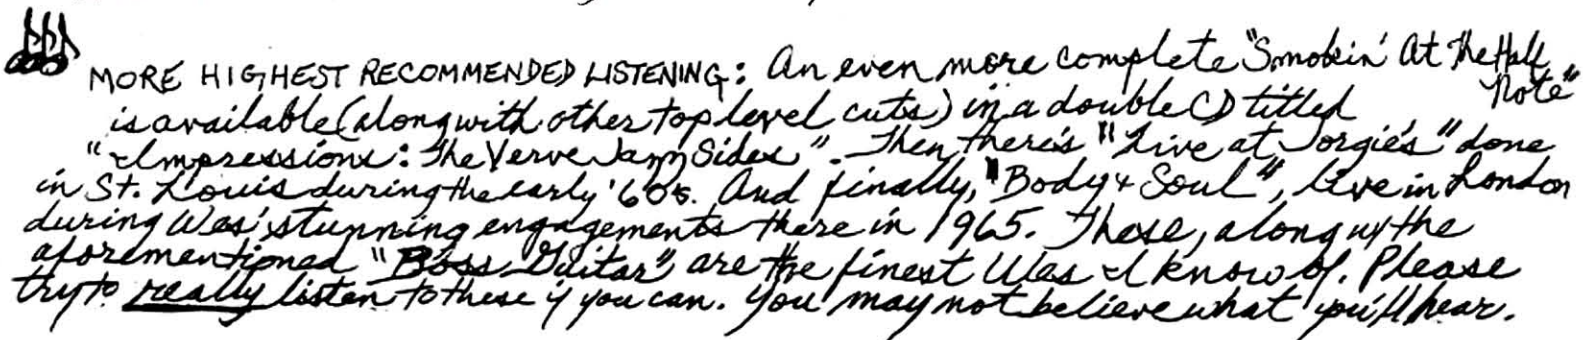 MORE HIGHEST RECOMMENDED LISTENING: An even more complete "Smokin' At The Half Note"
is available (along with other top level cuts) in a double CD titled
"Impressions: The Verve Jazz Sides". Then there's "Live at Jorgie's" done
in St. Louis during the early '60s. And finally, "Body & Soul", live in London
during Wes' stunning engagements there in 1965. These, along w/ the
aforementioned "Boss Guitar" are the finest Wes I know of. Please
try to really listen to these if you can. You may not believe what you'll hear.